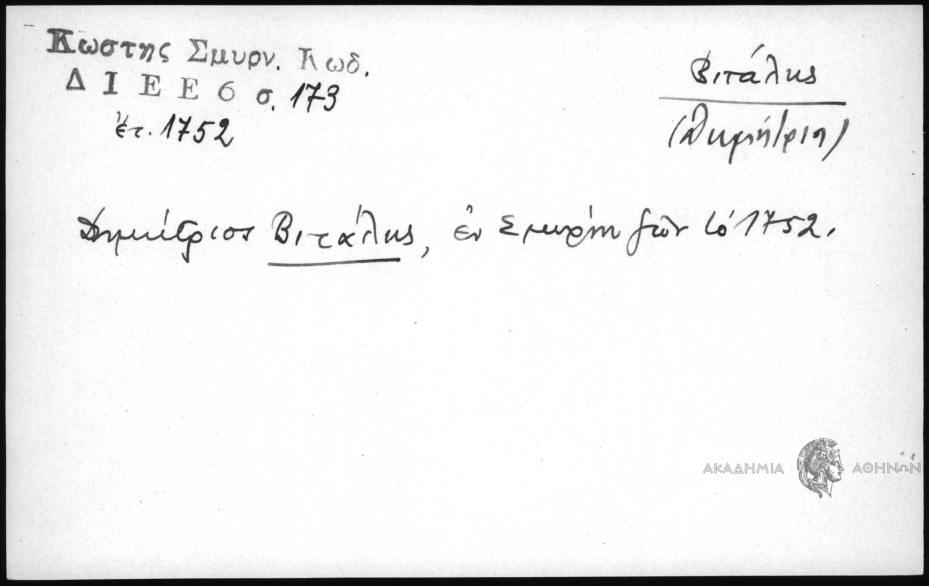 Κωστης Σμυρν. Κωδ.
Δ Ι Ε Ε 6 σ. 173
ἔτ. 1752
Βιτάλης
Δημήτριος Βιτάλης, ἐν Σμύρνῃ ζῶν τὸ 1752.
ΑΚΑΔΗΜΙΑ ΑΘΗΝῶΝ